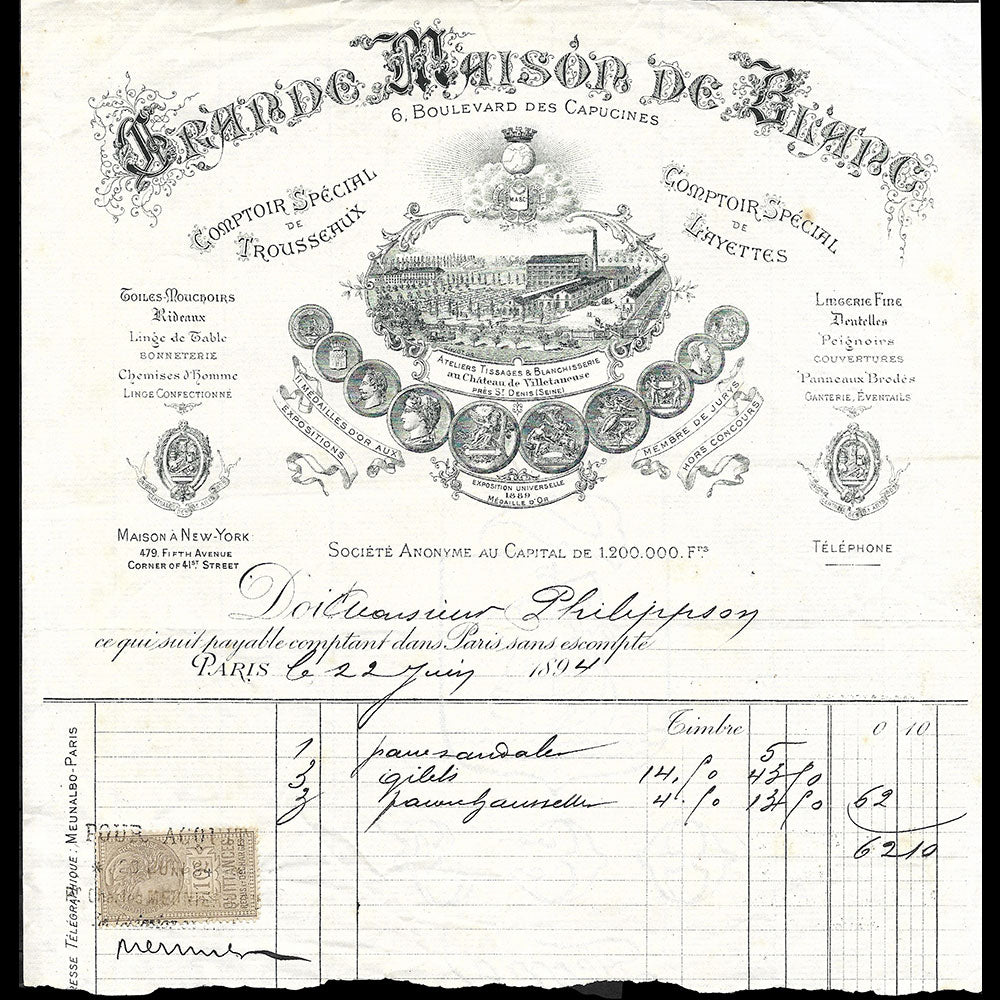 GRANDE MAISON DE BLANC
6, BOULEVARD DES CAPUCINES
COMPTOIR SPÉCIAL
DE
TROUSSEAUX
COMPTOIR SPÉCIAL
DE
LAYETTES
Toiles-Mouchoirs
Rideaux
Linge de Table
BONNETERIE
Chemises d'Homme
LINGE CONFECTIONNÉ
LINGERIE FINE
Dentelles
Peignoirs
COUVERTURES
Panneaux Brodés
GANTERIE, ÉVENTAILS
ATELIERS TISSAGES & BLANCHISSERIE
au Château de Villetaneuse
PRÈS ST DENIS (SEINE)
MÉDAILLES D'OR AUX
EXPOSITIONS
MEMBRE DE JURYS
HORS CONCOURS
EXPOSITION UNIVERSELLE
1889
MÉDAILLE D'OR
MAISON À NEW-YORK
479, FIFTH AVENUE
CORNER OF 41ST STREET
SOCIÉTÉ ANONYME AU CAPITAL DE 1.200.000. Frs
TÉLÉPHONE
Doit Monsieur Philippson
ce qui suit payable comptant dans Paris sans escompte
PARIS le 22 Juin 1894
Timbre 0 10
1 paire sandales 5
3 gilets 14.50 43 50
3 4.50 13 50 62
62 10
RESSE TÉLÉGRAPHIQUE : MEUNALBO-PARIS
POUR ACQUIT
10c
QUITTANCES